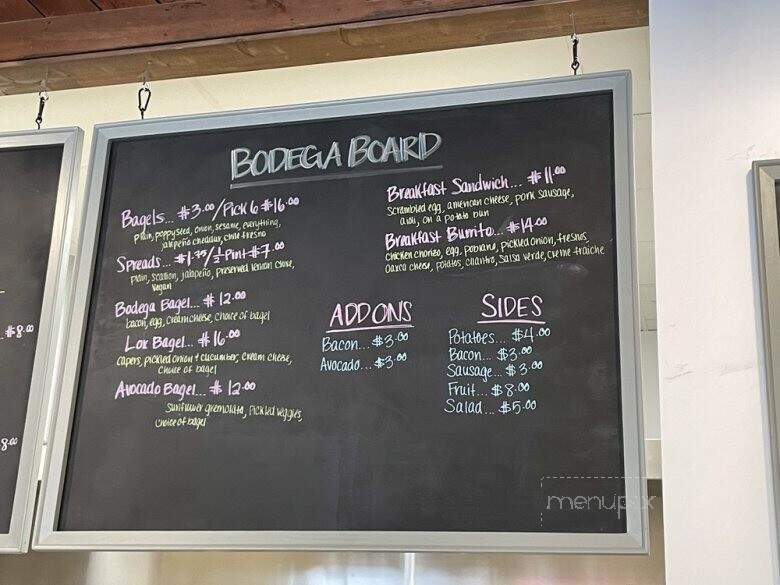 BODEGA BOARD
Bagels... $3.00/Pick 6 $16.00
plain, poppyseed, onion, sesame, everything,
jalapeño cheddar, chile fresno
Spreads... $1.75/½ Pint $7.00
plain, scallion, jalapeño, preserved lemon chive,
vegan
Bodega Bagel... $12.00
bacon, egg, cream cheese, choice of bagel
Lox Bagel... $16.00
capers, pickled onion + cucumber, cream cheese,
choice of bagel
Avocado Bagel... $12.00
sunflower gremolata, pickled veggies,
choice of bagel
Breakfast Sandwich... $11.00
scrambled egg, american cheese, pork sausage,
aioli, on a potato bun
Breakfast Burrito... $14.00
chicken chorizo, egg, poblano, pickled onion, fresnos,
oaxca cheese, potatos, cilantro, salsa verde, creme fraiche
ADD ONS
Bacon... $3.00
Avocado... $3.00
SIDES
Potatoes... $4.00
Bacon... $3.00
Sausage... $3.00
Fruit... $8.00
Salad... $5.00
$8.00
8.00
menupix